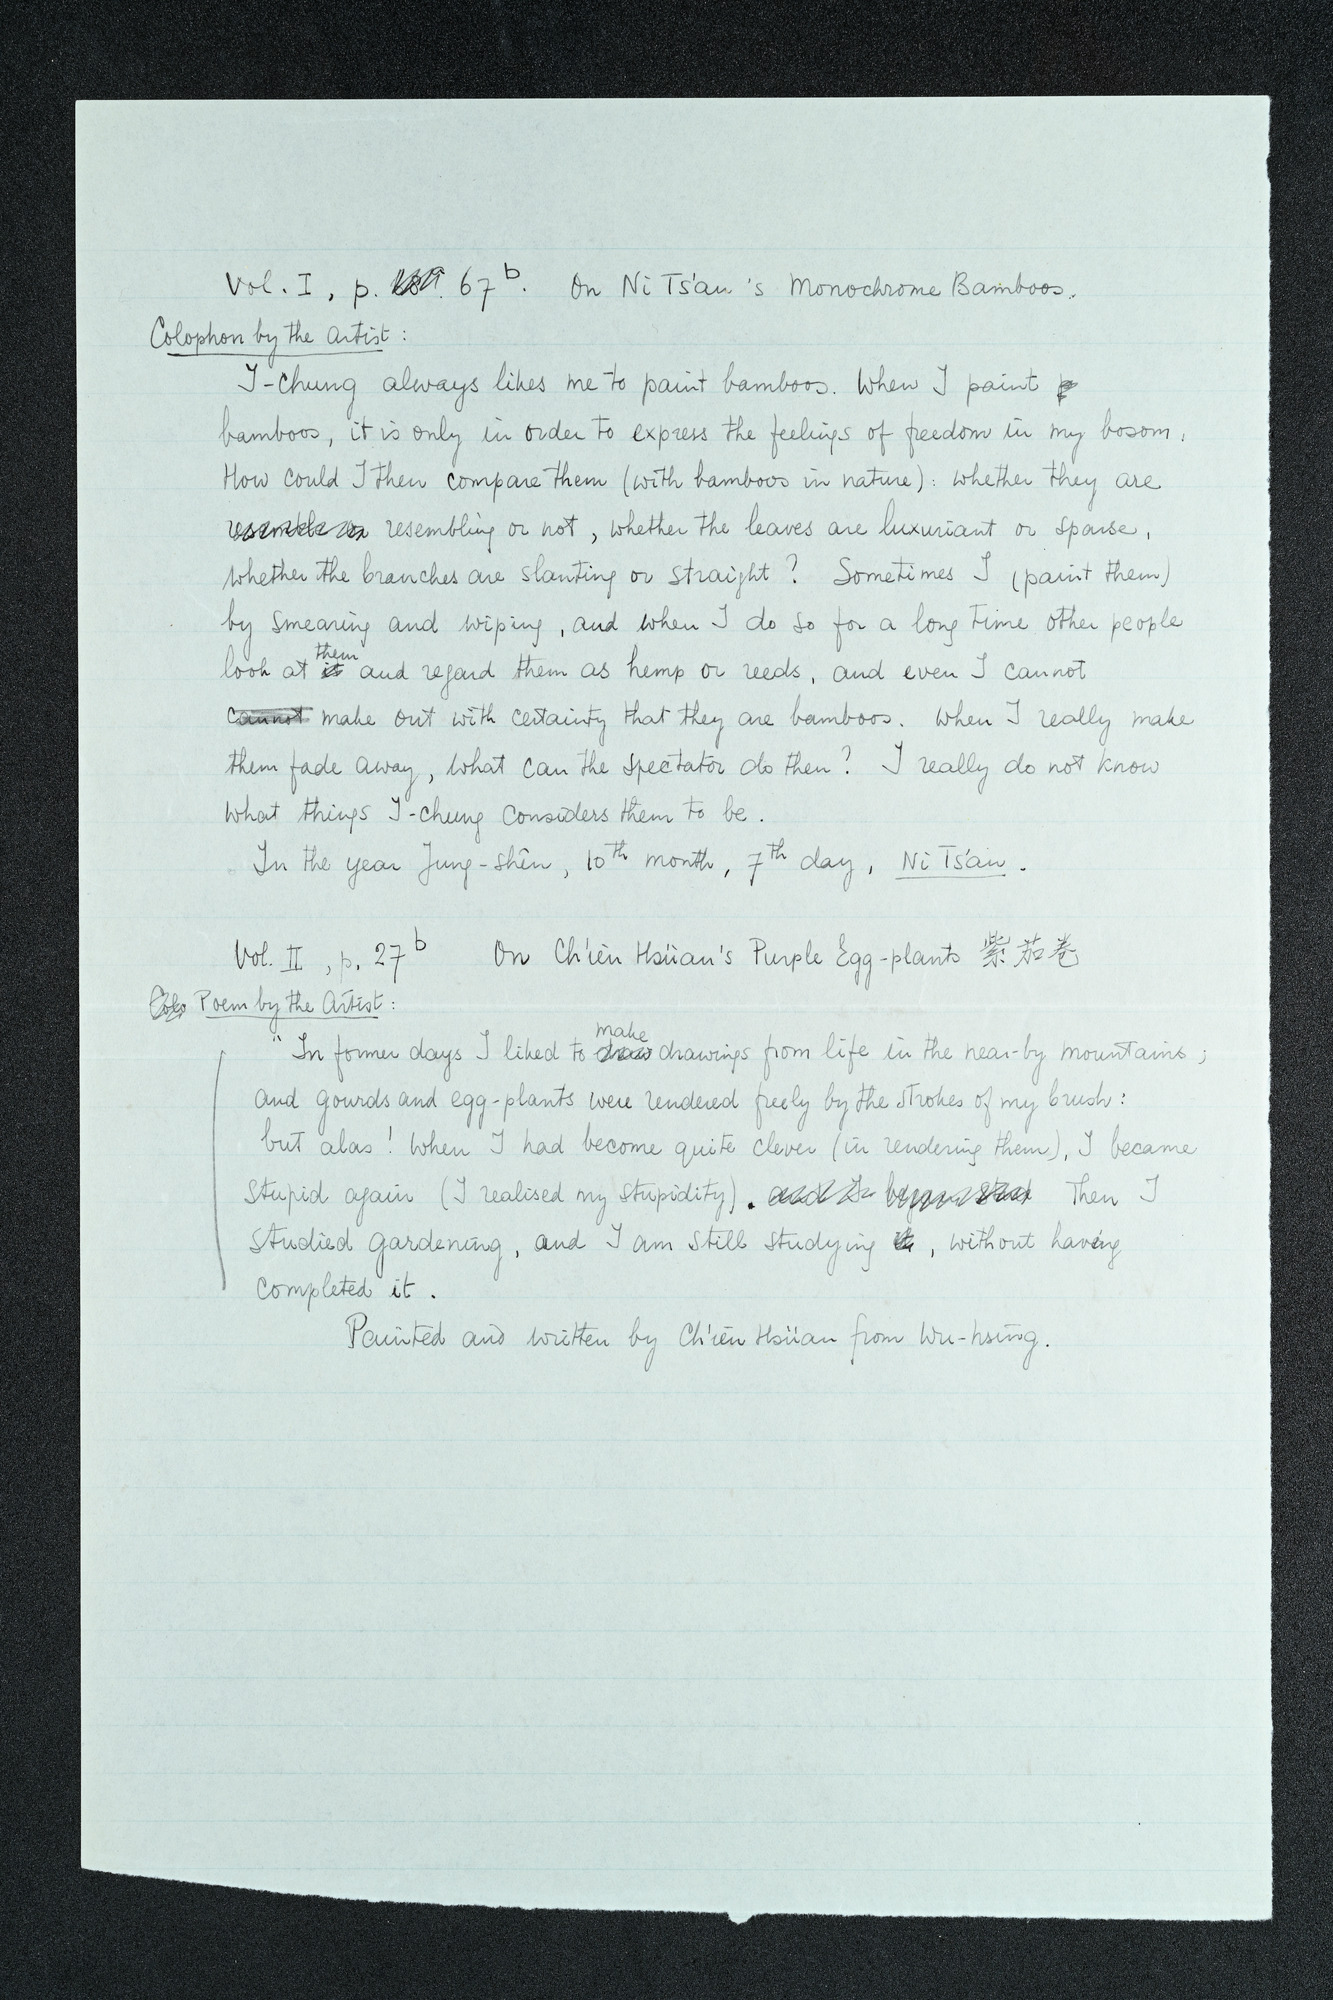 Vol. I, p. 67b. On Ni Ts'an's Monochrome Bamboos.
Colophon by the Artist:
I-chung always likes me to paint bamboos. When I paint
bamboos, it is only in order to express the feelings of freedom in my bosom.
How could I then compare them (with bamboos in nature): whether they are
resemble or resembling or not, whether the leaves are luxuriant or sparse,
whether the branches are slanting or straight? Sometimes I (paint them)
by smearing and wiping, and when I do so for a long time other people
look at it them and regard them as hemp or reeds, and even I cannot
cannot make out with certainty that they are bamboos. When I really make
them fade away, what can the spectator do then? I really do not know
what things I-chung considers them to be.
In the year Jung-shên, 10th month, 7th day, Ni Ts'an.
Vol. II, p. 27b On Ch'ien Hsüan's Purple Egg-plants 紫茄卷
Colo Poem by the Artist:
"In former days I liked to draw make drawings from life in the near-by mountains;
and gourds and egg-plants were rendered freely by the strokes of my brush:
but alas! When I had become quite clever (in rendering them), I became
stupid again (I realised my stupidity). Then I
studied gardening, and I am still studying it, without having
completed it.
Painted and written by Ch'ien Hsüan from Wu-hsing.